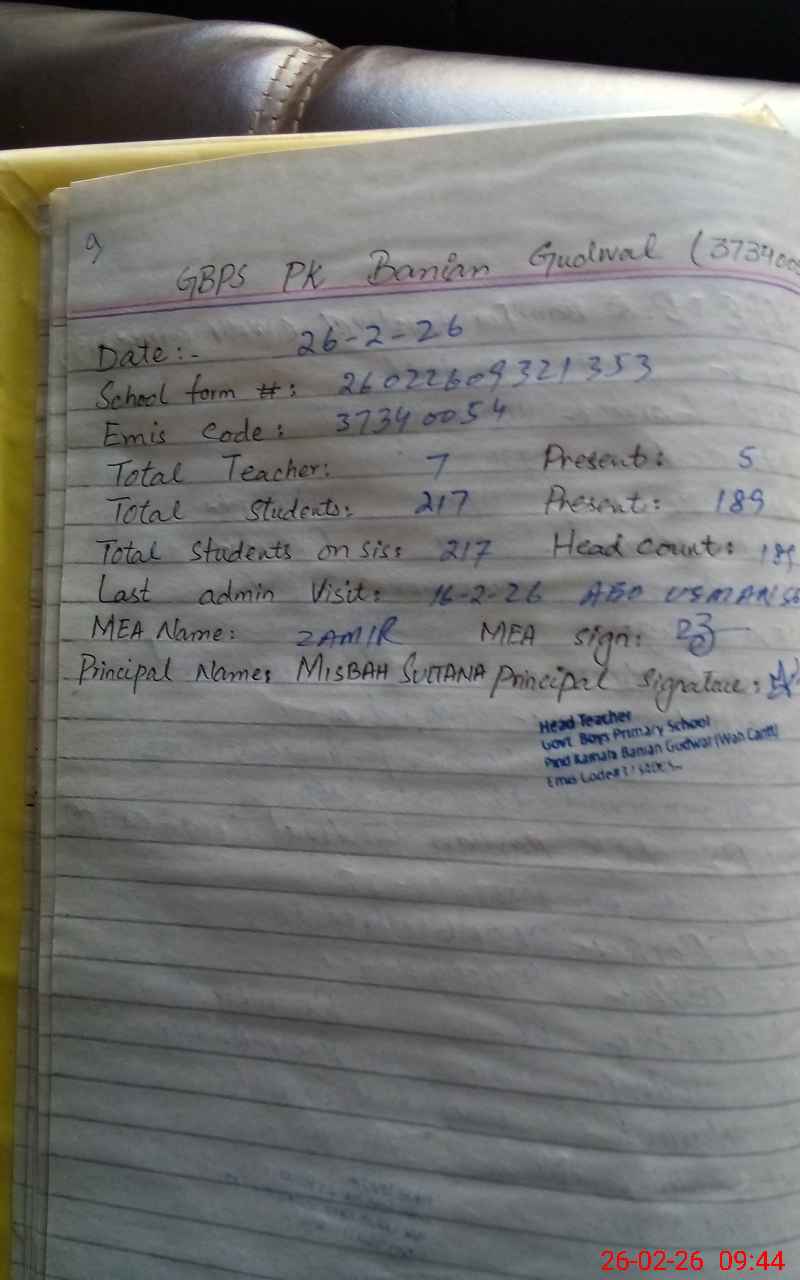 9
GBPS PK Banian Gudwal (3734005
Date:- 26-2-26
School form #: 26022609321353
Emis Code: 37340054
Total Teacher: 7 Present: 5
Total Students: 217 Present: 189
Total Students on sis: 217 Head count: 189
Last admin Visit: 16-2-26 AEO USMAN
MEA Name: ZAMIR MEA sign:
Principal Name: MISBAH SULTANA Principal Signature:
Head Teacher
Govt. Boys Primary School
Pind Kamala Banian Gudwal (Wah Cantt)
Emis Code#
26-02-26 09:44